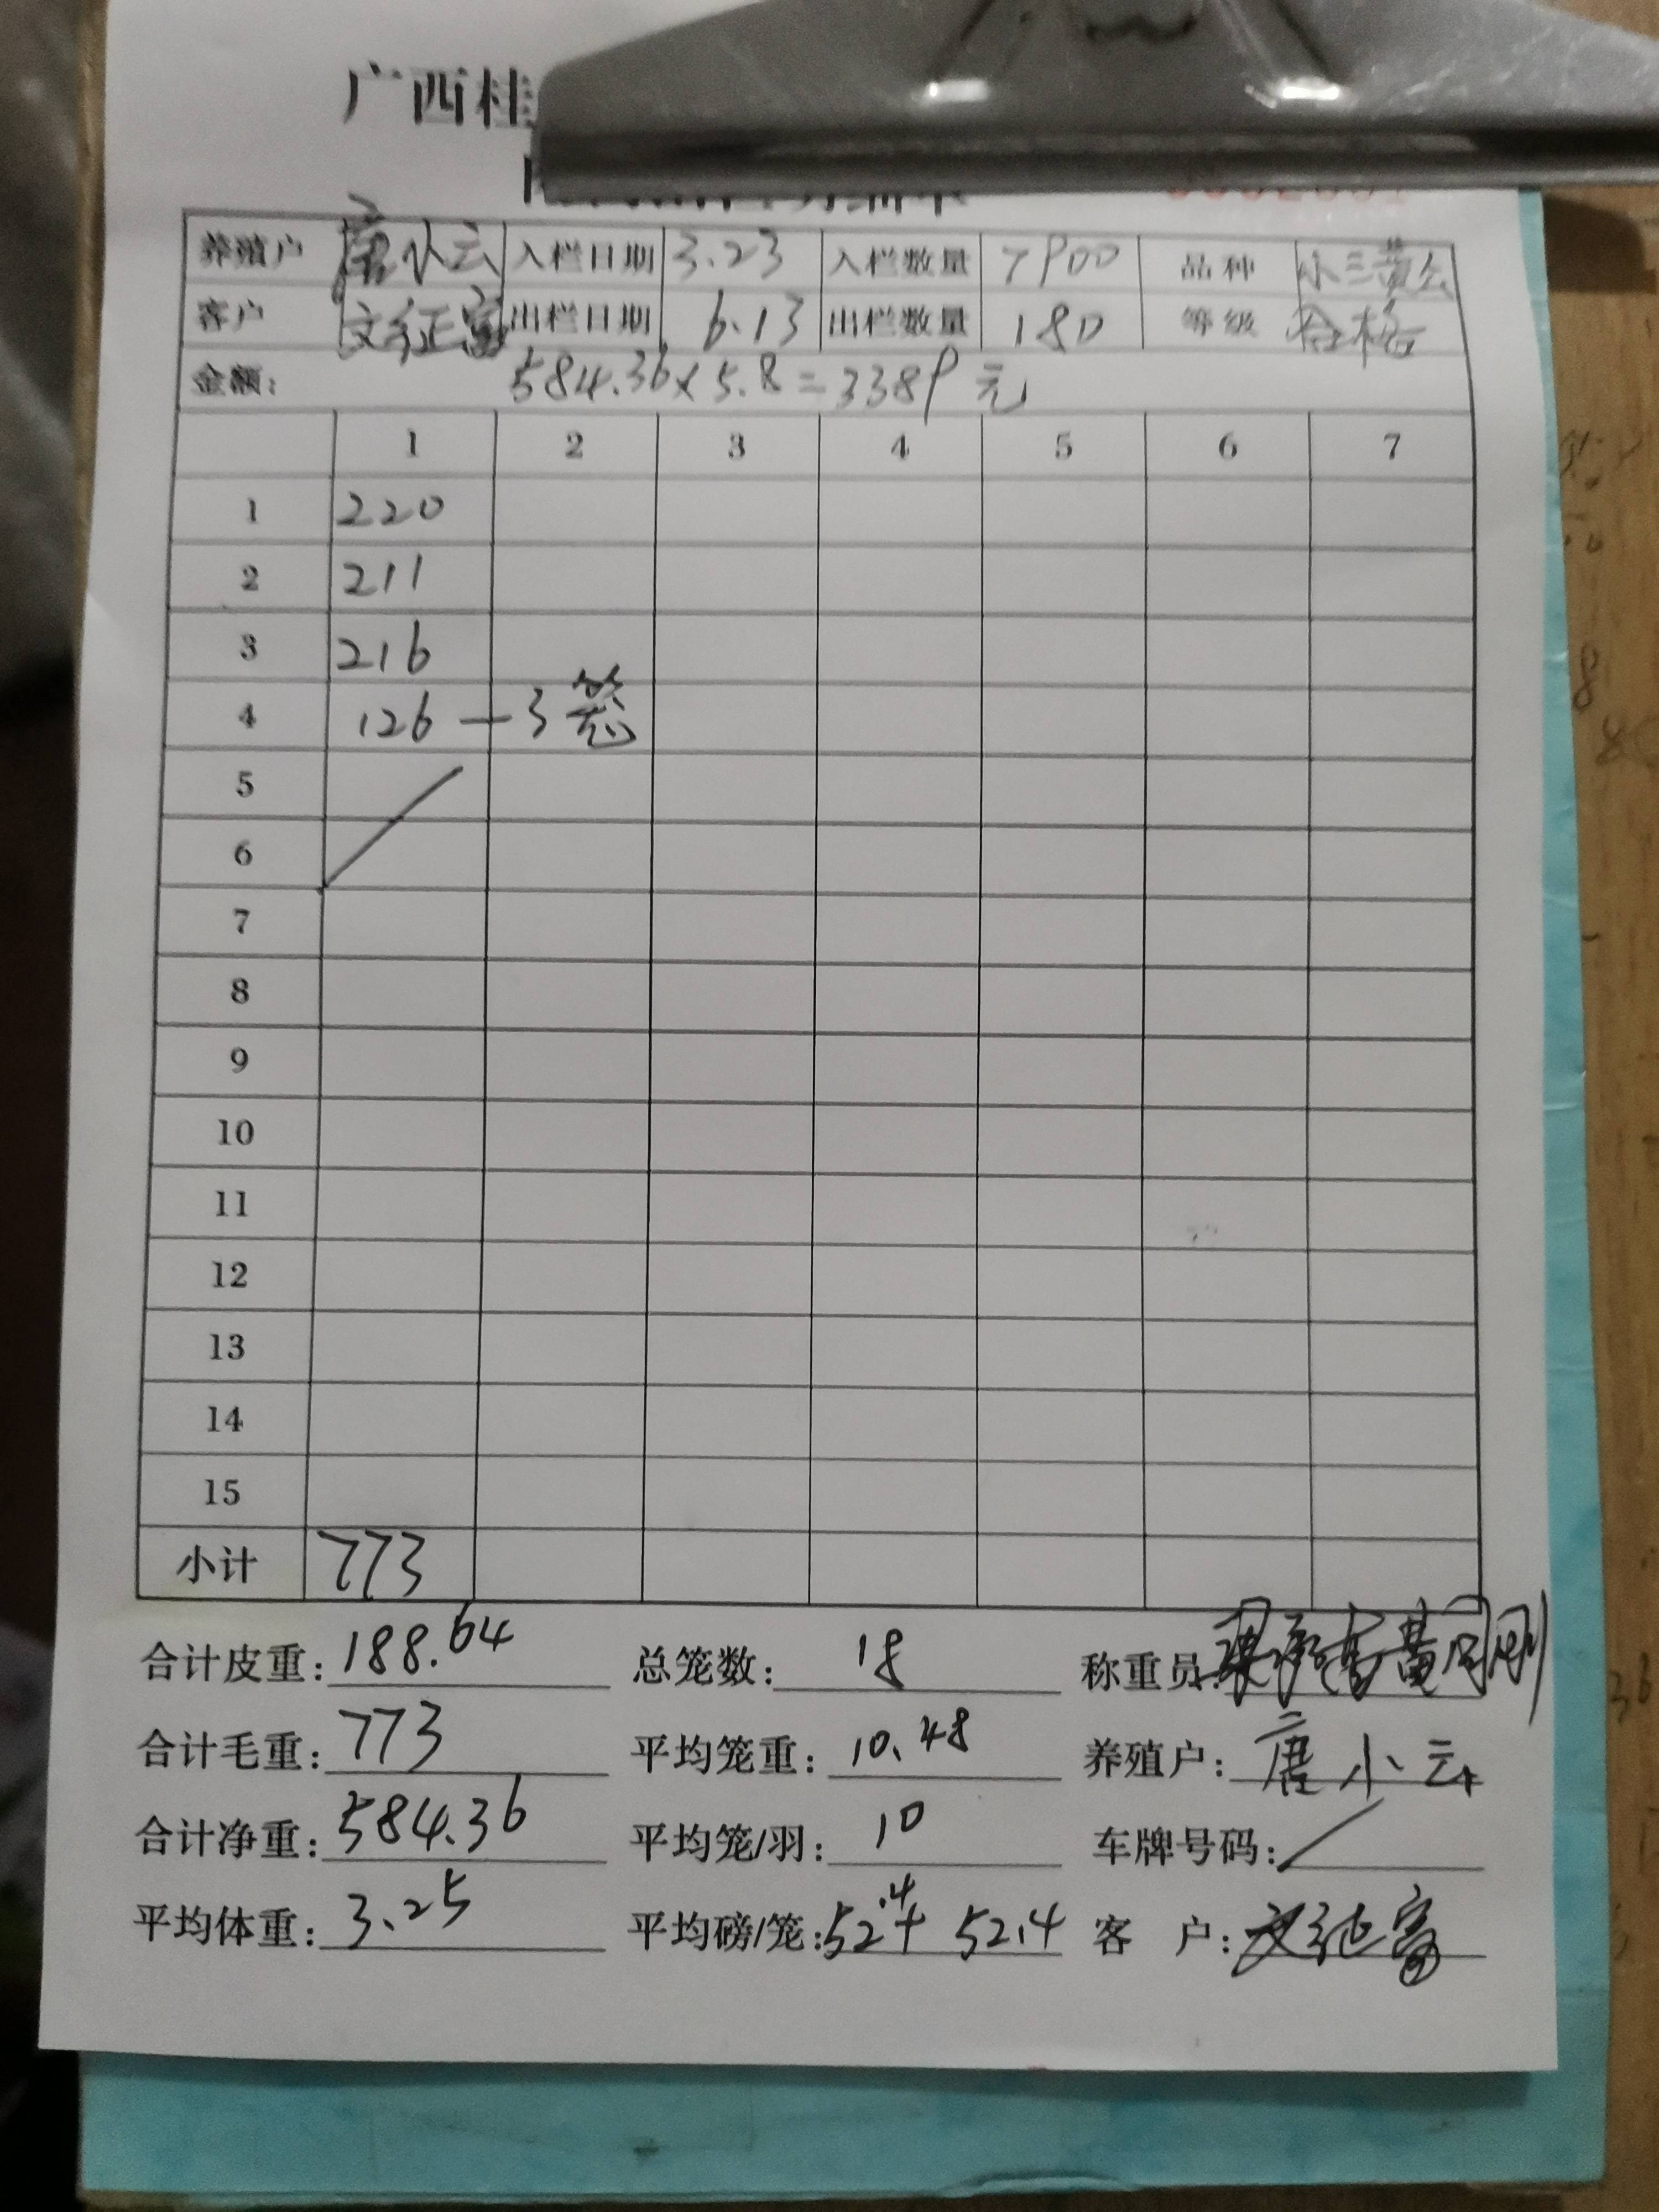 广西桂
养殖户 唐小云 入栏日期 3.23 入栏数量 7900 品种 小三黄公
客户 文征富 出栏日期 6.13 出栏数量 180 等级 合格
金额: 584.36×5.8=3389元
1 2 3 4 5 6 7
1 220
2 211
3 216
4 126—3笼
5
6
7
8
9
10
11
12
13
14
15
小计 773
合计皮重: 188.64 总笼数: 18 称重员:
合计毛重: 773 平均笼重: 10.48 养殖户: 唐小云
合计净重: 584.36 平均笼/羽: 10 车牌号码: /
平均体重: 3.25 平均磅/笼: 52.4 52.4 客 户: